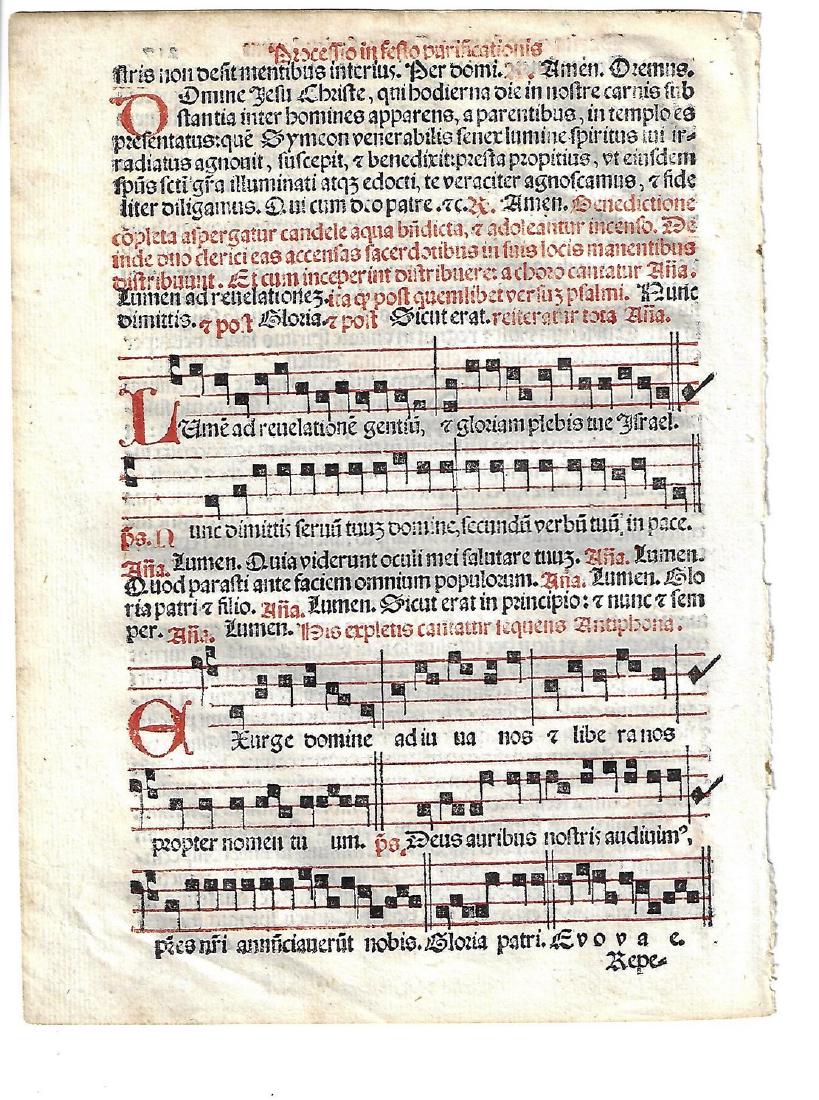 Processio in festo purificationis
stris non desit mentibus interius. Per domi. ℟. Amen. Oremus.
DOmine Jesu Christe, qui hodierna die in nostre carnis sub
stantia inter homines apparens, a parentibus, in templo es
presentatus: quē Symeon venerabilis senex lumine spiritus tui ir-
radiatus agnouit, suscepit, ⁊ benedixit: presta propitius, vt eiusdem
spūs scti grā illuminati atqꝫ edocti, te veraciter agnoscamus, ⁊ fide
liter diligamus. Qui cum deo patre .⁊c. ℟. Amen. Benedictione
cōpleta aspergatur candele aqua bñdicta, ⁊ adoleantur incenso. De
inde duo clerici eas accensas sacerdotibus in suis locis manentibus
distribuunt. Et cum inceperint distribuere: a choro cantatur Aña.
Lumen ad reuelationeꝫ. ita ꝙ post quemlibet versuꝫ psalmi. Nunc
dimittis. ⁊ post Gloria. ⁊ post Sicut erat. reiteratur tota Aña.
LUmē ad reuelationē gentiū, ⁊ gloriam plebis tue Israel.
p̄s. Nunc dimittis seruū tuuꝫ domine, secundū verbū tuū in pace.
Aña. Lumen. Quia viderunt oculi mei salutare tuuꝫ. Aña. Lumen.
Quod parasti ante faciem omnium populorum. Aña. Lumen. Glo
ria patri ⁊ filio. Aña. Lumen. Sicut erat in principio: ⁊ nunc ⁊ sem
per. Aña. Lumen. His expletis cantatur sequens Antiphona.
EXurge domine adiu ua nos ⁊ libe ra nos
propter nomen tu um. p̄s. Deus auribus nostris audiuimꝰ,
p̄res nr̄i annūciauerūt nobis. Gloria patri. E v o v a e.
Repe-